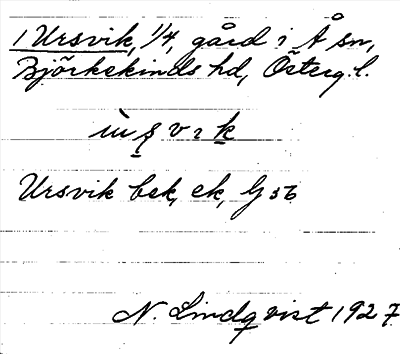 1 Ursvik, 1/4, gård i Å sn,
Björkekinds hd, Österg. l.
ùʂvɪk
Ursvik bek, ek, G 56
N. Lindqvist 1927